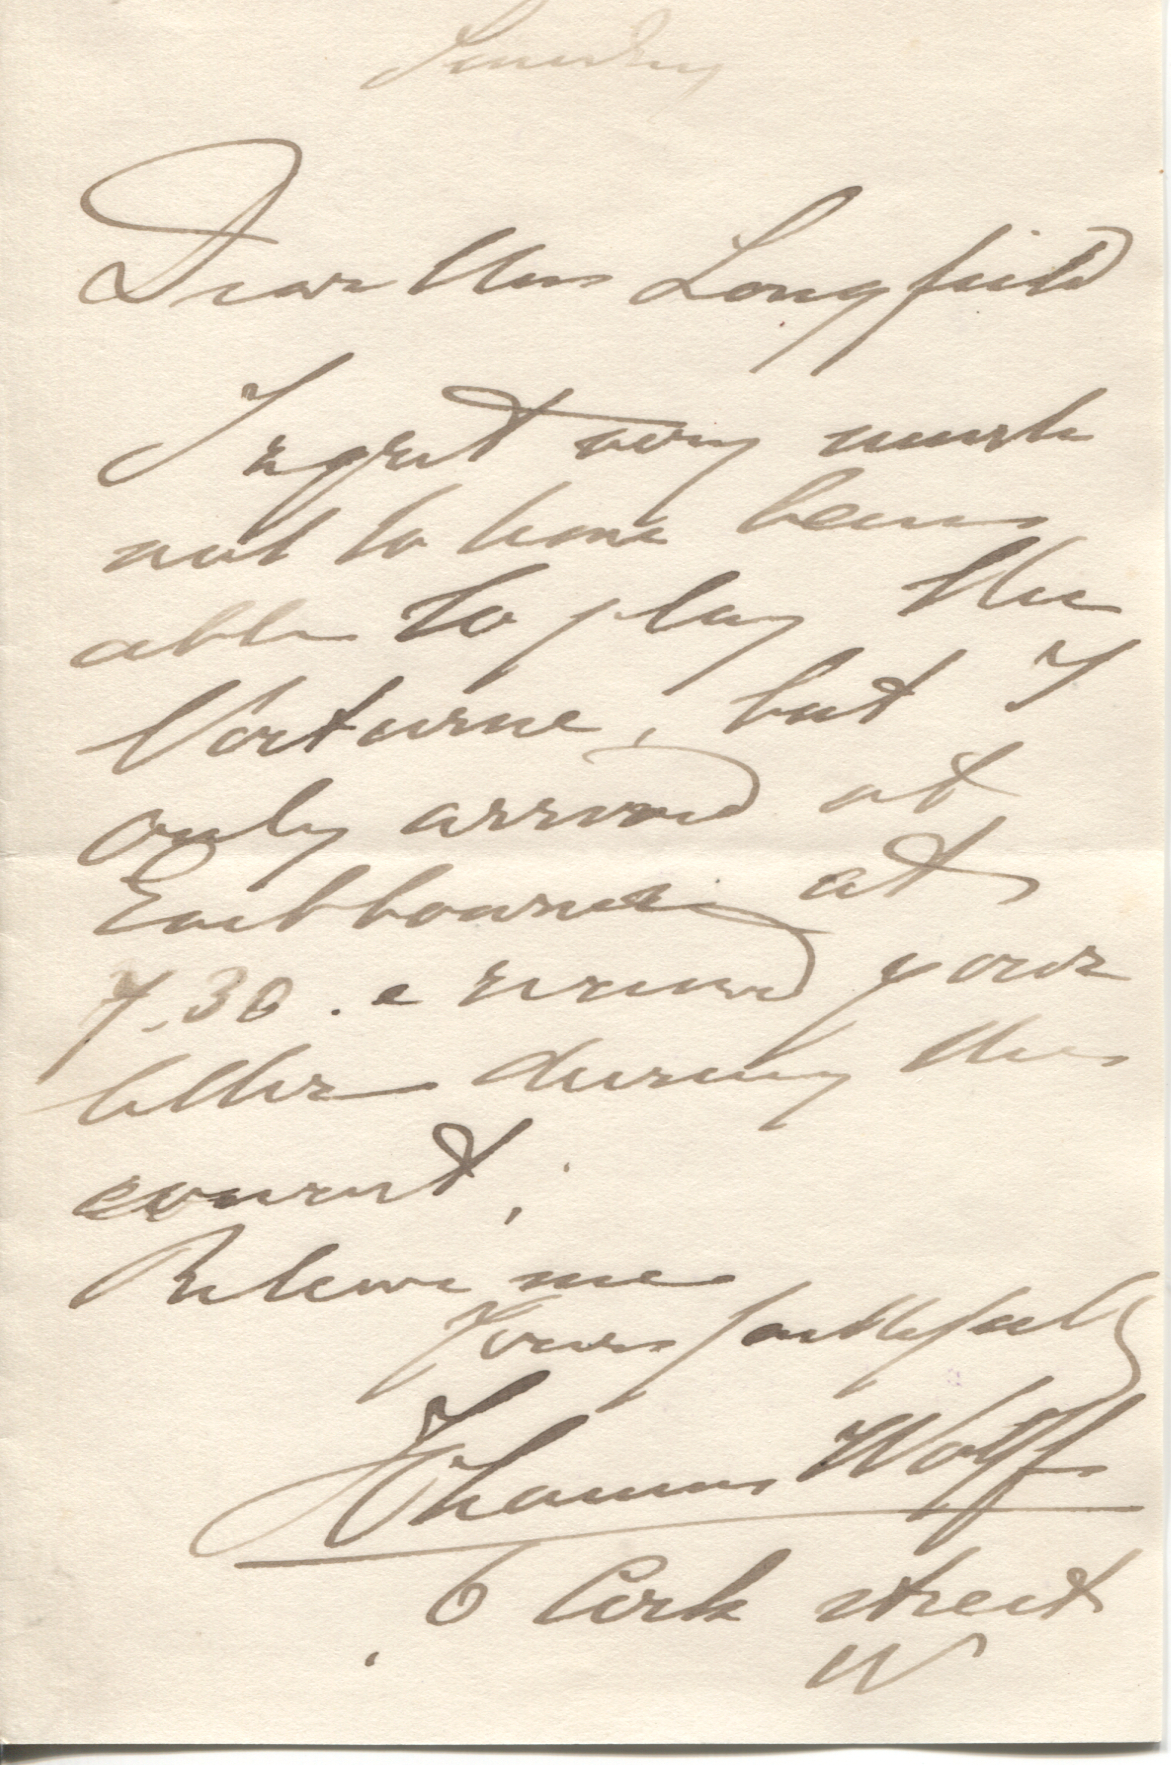 Sunday
Dear Mrs Longfield
I regret very much
not to have been
able to play the
Nocturne, but I
only arrived at
Eastbourne at
7.30. e received your
letter during the
concert;
Believe me
Yours faithfully
Johannes Wolff
6 Cork street
W